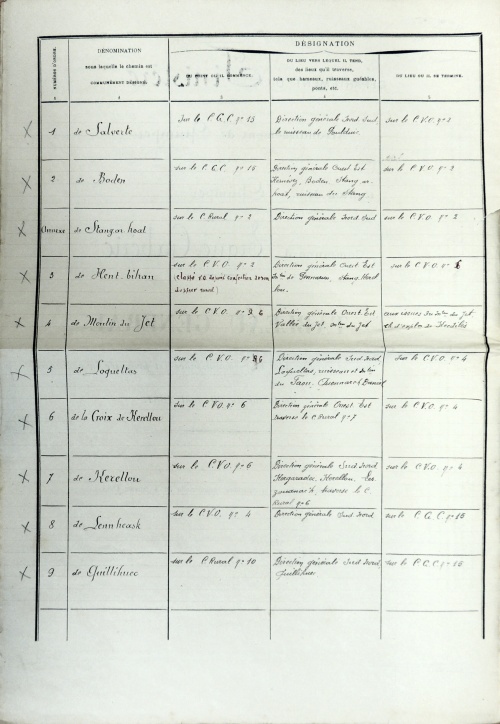 DÉSIGNATION
NUMÉROS D'ORDRE.
DÉNOMINATION
sous laquelle le chemin est
COMMUNÉMENT DÉSIGNÉ.
DU POINT OÙ IL COMMENCE.
DU LIEU VERS LEQUEL IL TEND,
des lieux qu'il traverse,
tels que hameaux, ruisseaux guéables,
ponts, etc.
DU LIEU OÙ IL SE TERMINE.
1 de Salverte
sur le C.G.C. nº 15
Direction générale Nord Sud
le ruisseau de
sur le C.V.O. nº 2
2 de Boden
sur le C.G.C. nº 15
Direction générale Ouest Est
Boden, Stang ar
hoat, ruisseau du Stang
sur le C.V.O. nº 2
Annexe de Stang ar hoat
sur le C. Rural nº 2
Direction générale Nord Sud
sur le C.V.O. nº 2
3 de Hent-bihan
sur le C.V.O. nº 2
(Classé V.O. depuis
Direction générale Ouest Est
sur le C.V.O. nº 6
4 de Moulin du Jet
sur le C.V.O. nº 6
Direction générale Ouest Est
Vallée du Jet. Mlin du Jet
aux issues du Mlin du Jet
5 de Loqueltas
sur le C.V.O. nº 6
Direction générale Sud Nord
Loqueltas, ruisseau et Mlin
du Faou,
sur le C.V.O. nº 4
6 de la Croix de Kerellou
sur le C.V.O. nº 6
Direction générale Ouest Est
traverse le C. Rural nº 7
sur le C.V.O. nº 4
7 de Kerellou
sur le C.V.O. nº 6
Direction générale Sud Nord
Kerellou
traverse le C.
Rural nº 6
sur le C.V.O. nº 4
8 de Leanheask
sur le C.V.O. nº 4
Direction générale Sud Nord
sur le C.G.C. nº 15
9 de Quillihuec
sur le C. Rural nº 10
Direction générale Sud Nord,
Quillihuec
sur le C.G.C. nº 15